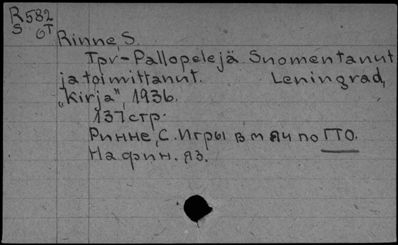 R582
S OT
Rinne, S.
Tpv-Pallopelejä. Suomentanut
ja toimittanut. Leningrad,
„Kirja", 1936.
137 стр.
Ринне, С. Игры в мяч по ГТО.
На фин. яз.